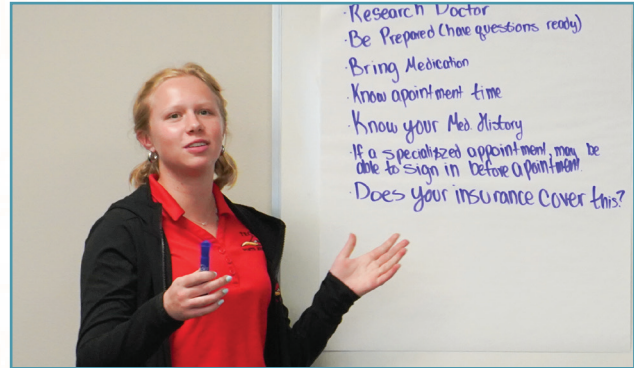 ·Research Doctor
·Be Prepared (have questions ready)
·Bring Medication
·Know apointment time
·Know your Med. History
·If a specialized appointment, may be
able to sign in before apointment
·Does your insurance cover this?